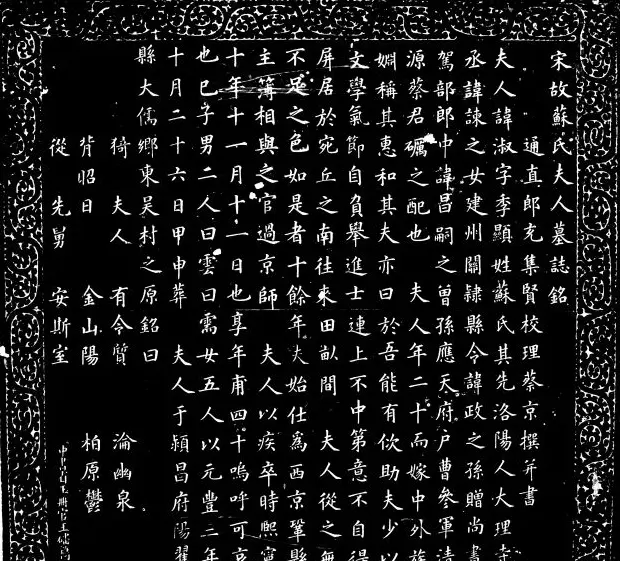 宋故蘇氏夫人墓誌銘
通直郎充集賢校理蔡京撰并書
夫人諱淑字季顯姓蘇氏其先洛陽人大理寺
丞諱諫之女建州關隸縣令諱政之孫贈尚書
駕部郎中諱昌嗣之曾孫應天府戶曹參軍濟
源蔡君礪之配也 夫人年二十而嫁中外族
婣稱其惠和其夫亦曰於吾能有佽助夫少以
文學氣節自負舉進士連上不中第意不自得
屏居於宛丘之南往來田畝間 夫人從之無
不足之色如是者十餘年夫始仕為西京鞏縣
主簿相與之官過京師 夫人以疾卒時熙寧
十年十一月十一日也享年甫四十嗚呼可哀
也已子男二人曰雲曰需女五人以元豐二年
十月二十六日甲申葬 夫人于潁昌府陽翟
縣大儒鄉東吳村之原銘曰
猗夫人 有令質 淪幽泉
背昭日 金山陽 柏原鬱
從先舅 安斯室